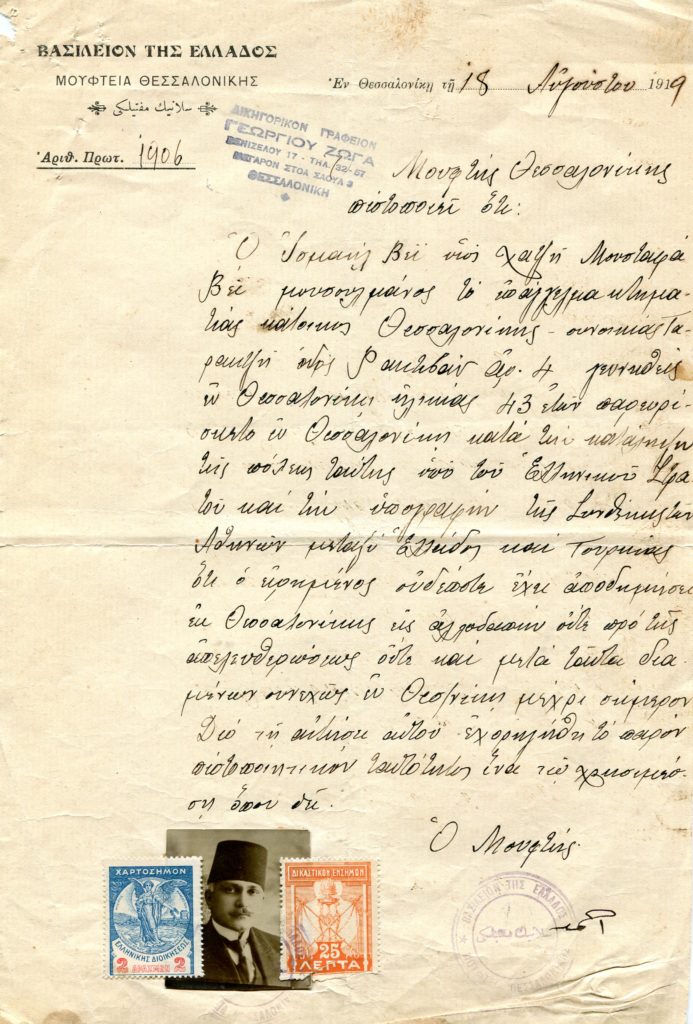 ΒΑΣΙΛΕΙΟΝ ΤΗΣ ΕΛΛΑΔΟΣ
ΜΟΥΦΤΕΙΑ ΘΕΣΣΑΛΟΝΙΚΗΣ
سلانيك مفتيلكى
Ἀριθ. Πρωτ. 1906
Ἐν Θεσσαλονίκῃ τῇ 18 Αὐγούστου 1919
ΔΙΚΗΓΟΡΙΚΟΝ ΓΡΑΦΕΙΟΝ
ΓΕΩΡΓΙΟΥ ΖΩΓΑ
ΒΕΝΙΖΕΛΟΥ 17 - ΤΗΛ. 32-57
ΜΕΓΑΡΟΝ ΣΤΟΑ ΣΑΟΥΛ 3
ΘΕΣΣΑΛΟΝΙΚΗ
Ὁ Μουφτής Θεσσαλονίκης
πιστοποιεῖ ὅτι:
Ὁ Ἰσμαήλ Βέη υἱός χατζῆ Μουσταφᾶ
Βέη μουσουλμάνος τὸ ἐπάγγελμα κτημα-
τίας κάτοικος Θεσσαλονίκης - συνοικίας Τα-
ὁδός ἀρ. 4 γεννηθείς
ἐν Θεσσαλονίκῃ ἡλικίας 43 ἐτῶν παρευρί-
σκετο ἐν Θεσσαλονίκῃ κατά τὴν κατάληψιν
τῆς πόλεως ταύτης ὑπό τοῦ Ἑλληνικοῦ Στρα
τοῦ καί τὴν ὑπογραφὴν τῆς Συνθήκης τῶν
Ἀθηνῶν μεταξύ Ἑλλάδος καί Τουρκίας
ὅτι ὁ εἰρημένος οὐδέποτε ἔχει ἀποδημήσει
ἐκ Θεσσαλονίκης εἰς ἀλλοδαπήν οὔτε πρό τῆς
ἀπελευθερώσεως οὔτε καί μετά ταῦτα δια-
μένων συνεχῶς ἐν Θεσ/νίκῃ μέχρι σήμερον
Διό τῇ αἰτήσει αὐτοῦ ἐχορηγήθη τό παρόν
πιστοποιητικόν ταὐτότητος ἵνα τῷ χρησιμεύ-
σῃ ὅπου δεῖ.
Ὁ Μουφτής
ΧΑΡΤΟΣΗΜΟΝ
ΕΛΛΗΝΙΚΗΣ ΔΙΟΙΚΗΣΕΩΣ
2 ΔΡΑΧΜΑΙ 2
ΔΙΚΑΣΤΙΚΟΝ ΕΝΣΗΜΟΝ
25
ΛΕΠΤΑ
ΒΑΣΙΛΕΙΟΝ ΤΗΣ ΕΛΛΑΔΟΣ